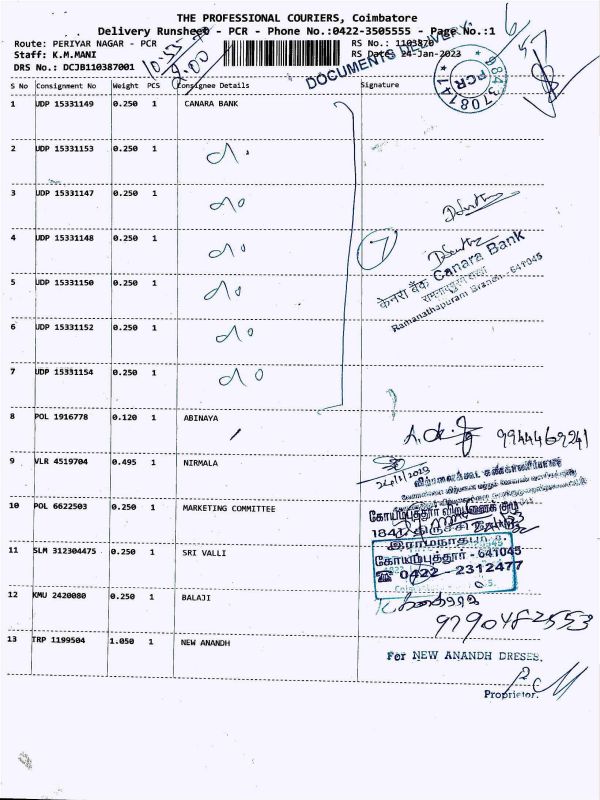 THE PROFESSIONAL COURIERS, Coimbatore
Delivery Runsheet - PCR - Phone No.:0422-3505555 - Page No.:1
Route: PERIYAR NAGAR - PCR
RS No.: 1103870
Staff: K.M.MANI
RS Date: 24-Jan-2023
DRS No.: DCJB110387001
10:55
2:00
DOCUMENTS DELIVERY
PCR
S No Consignment No Weight PCS Consignee Details Signature
1 UDP 15331149 0.250 1 CANARA BANK
2 UDP 15331153 0.250 1
3 UDP 15331147 0.250 1
4 UDP 15331148 0.250 1
7
केनरा बैंक Canara Bank
Ramanathapuram Branch - 641045
5 UDP 15331150 0.250 1
6 UDP 15331152 0.250 1
7 UDP 15331154 0.250 1
8 POL 1916778 0.120 1 ABINAYA
9944469241
9 VLR 4519704 0.495 1 NIRMALA
24/1/2023
10 POL 6622503 0.250 1 MARKETING COMMITTEE
கோயம்புத்தூர் விற்பனைக் குழு
1841 திருச்சி
11 SLM 312304475 0.250 1 SRI VALLI
கோயம்புத்தூர் - 641045
☎ 0422 - 2312477
12 KMU 2420080 0.250 1 BALAJI
9790482553
13 TRP 1199504 1.050 1 NEW ANANDH
For NEW ANANDH DRESES.
Proprietor.